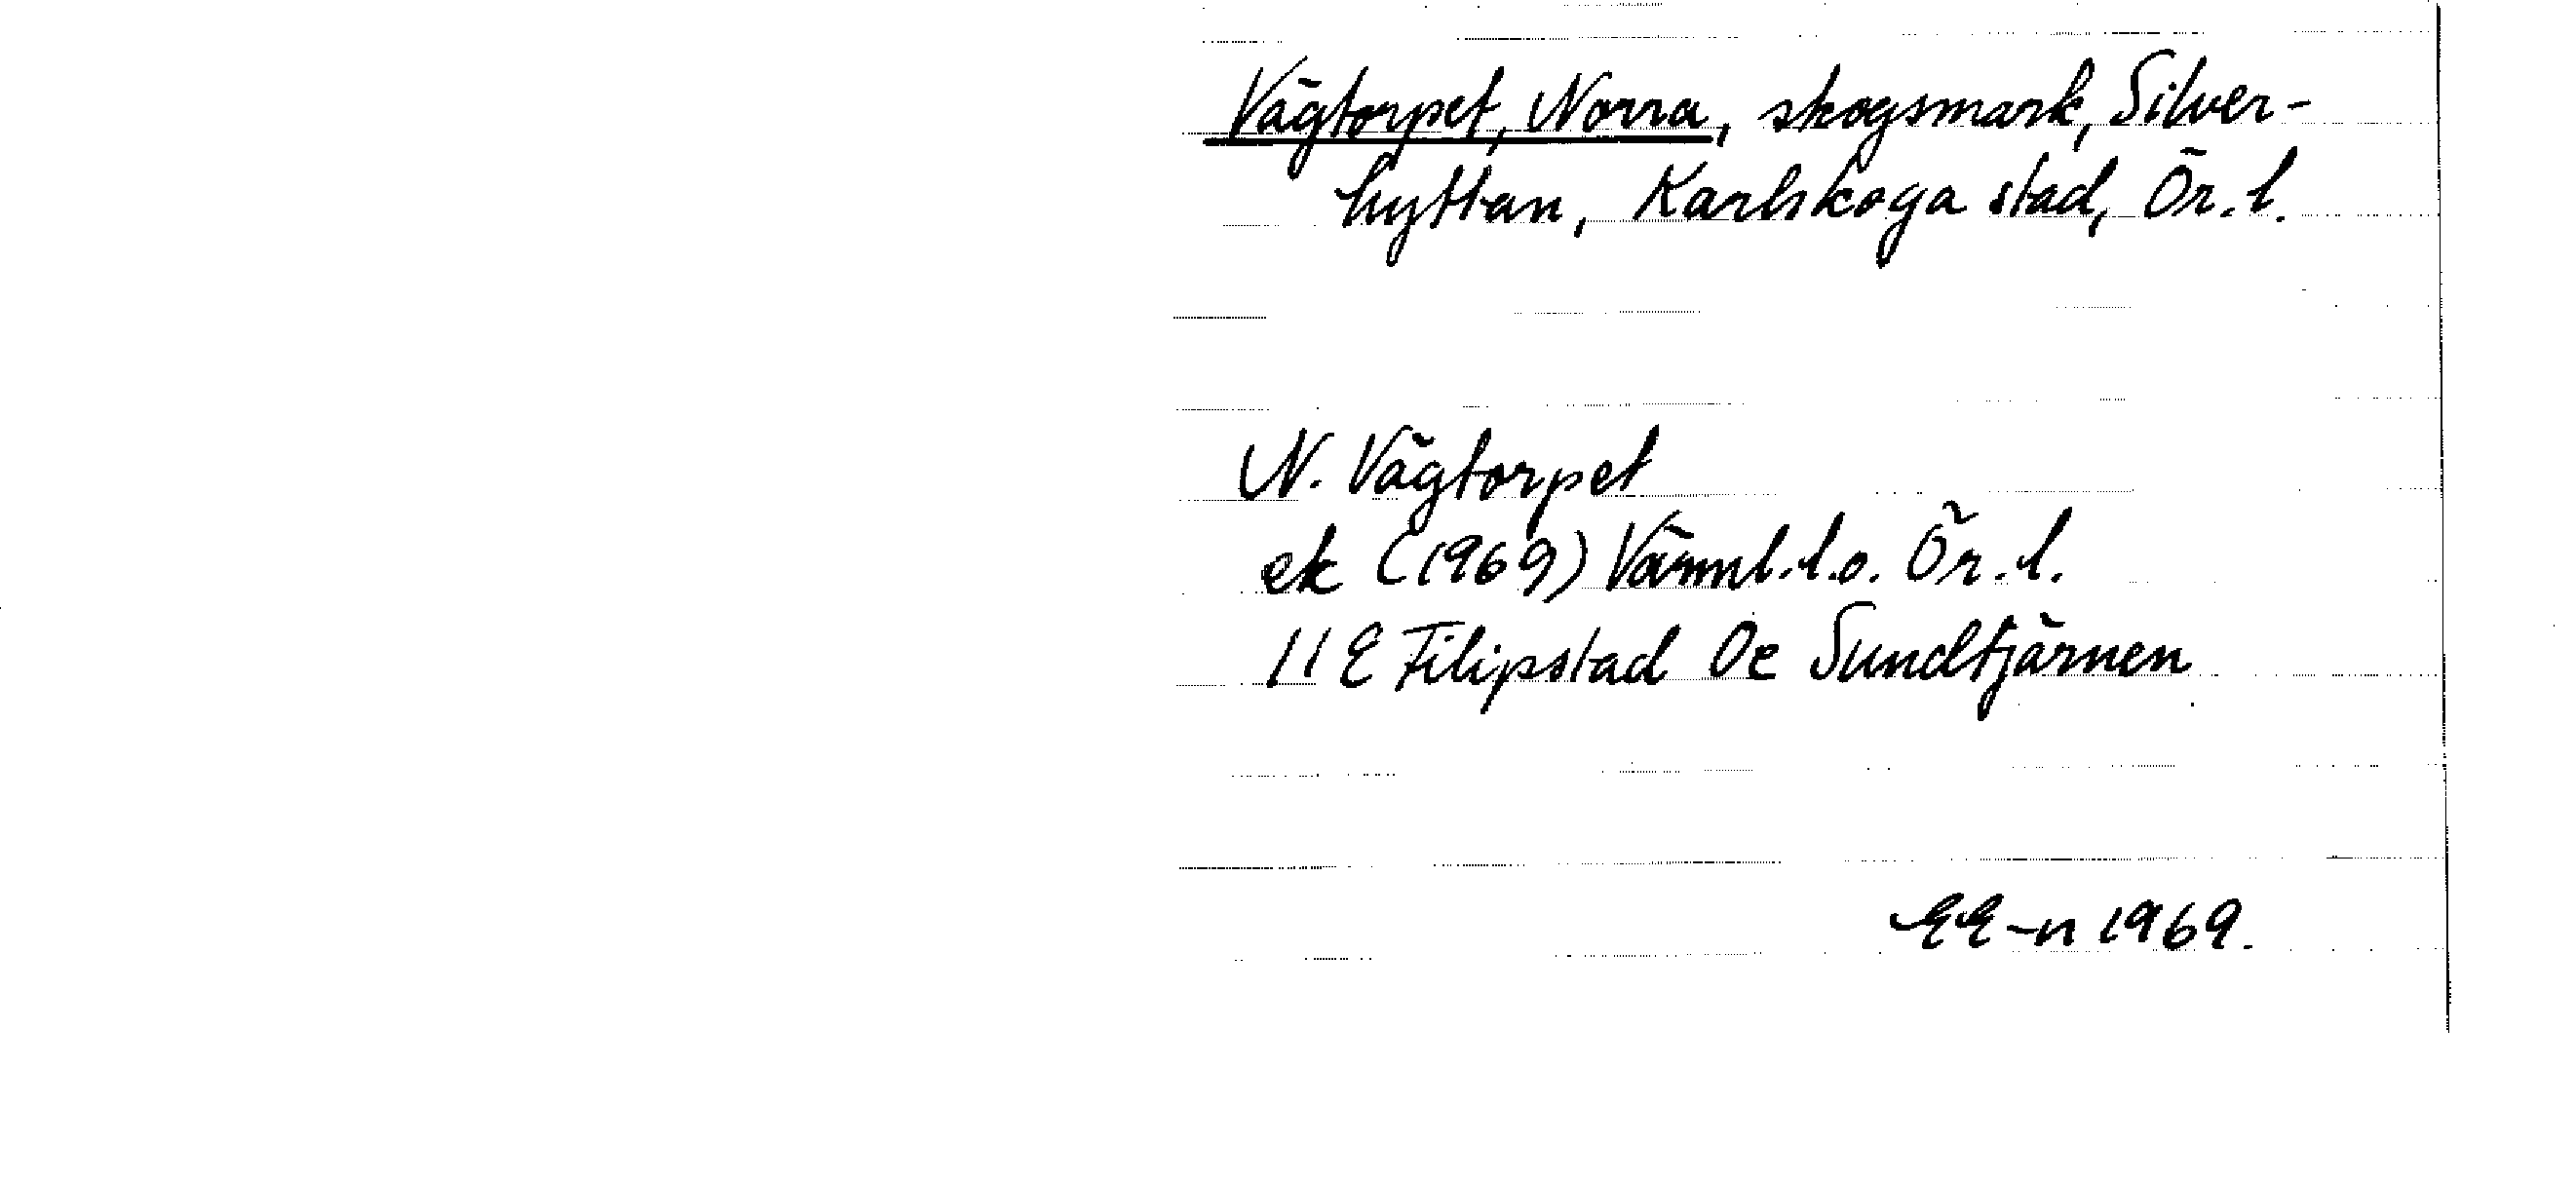 Vägtorpet, Norra, skogsmark, Silver-
hyttan, Karlskoga stad, Ör. l.
N. Vägtorpet
ek (1969) Värml. l. o. Ör. l.
11 E Filipstad 0e Sundtjärnen
EE-n 1969.